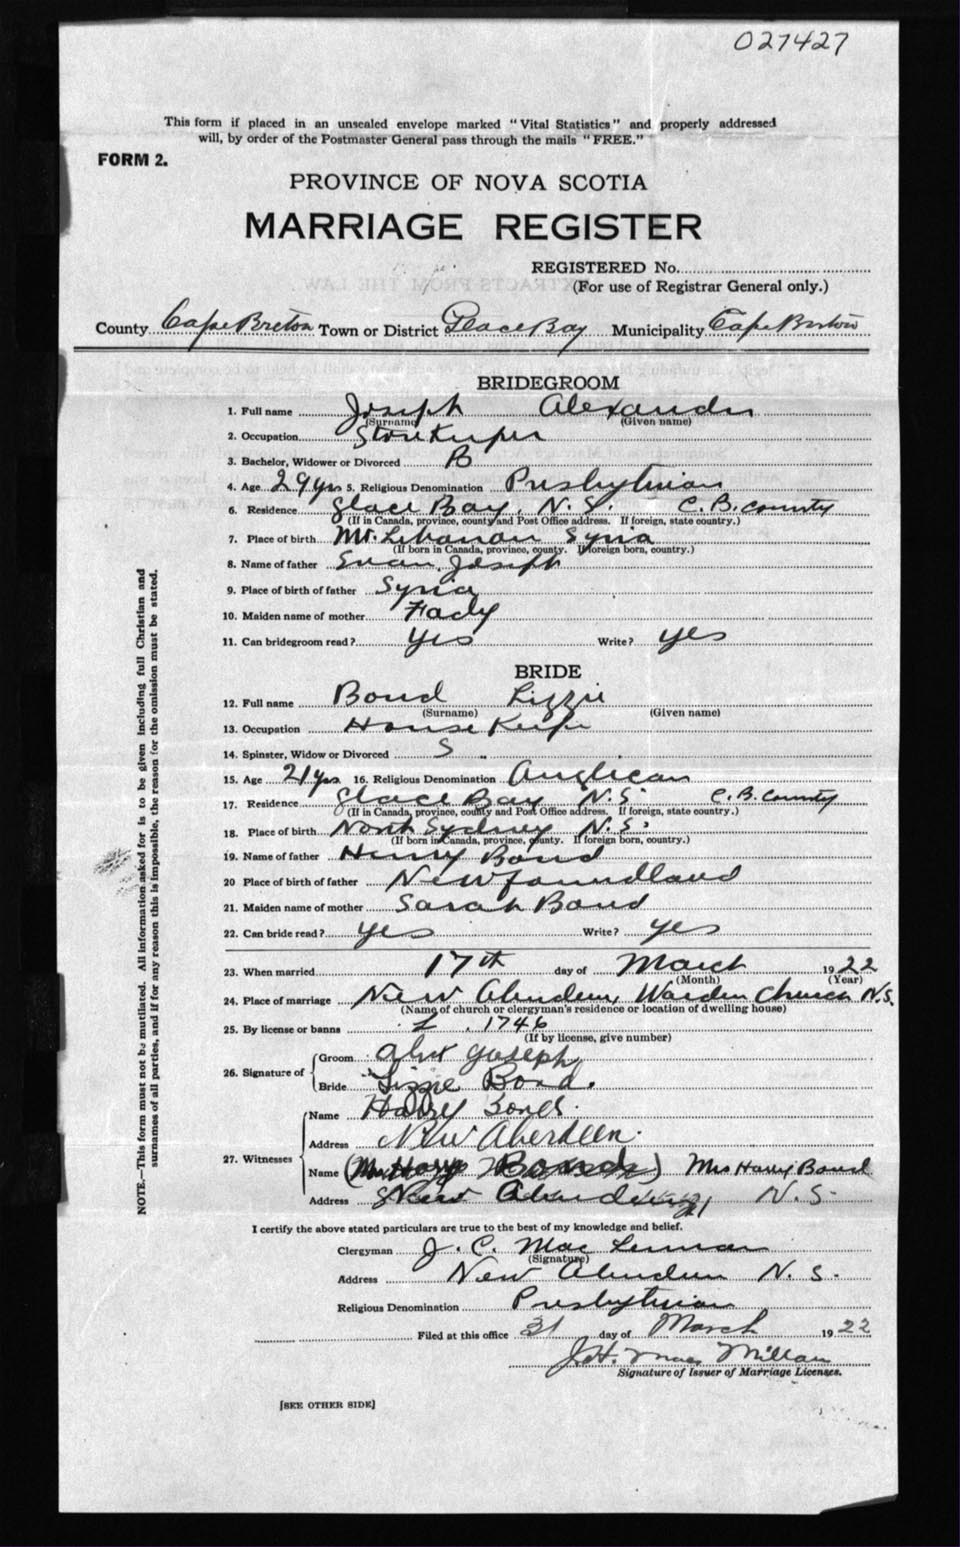 027427
This form if placed in an unsealed envelope marked "Vital Statistics" and properly addressed
will, by order of the Postmaster General pass through the mails "FREE."
FORM 2.
PROVINCE OF NOVA SCOTIA
MARRIAGE REGISTER
REGISTERED No.
(For use of Registrar General only.)
County Cape Breton Town or District Glace Bay Municipality Cape Breton
BRIDEGROOM
1. Full name Joseph Alexander
(Surname) (Given name)
2. Occupation Store Keeper
3. Bachelor, Widower or Divorced B
4. Age 29 yrs 5. Religious Denomination Presbyterian
6. Residence Glace Bay, N.S. C.B. County
(If in Canada, province, county and Post Office address. If foreign, state country.)
7. Place of birth Mt. Lebanon Syria
(If born in Canada, province, county. If foreign born, country.)
8. Name of father Joseph
9. Place of birth of father Syria
10. Maiden name of mother Fady
11. Can bridegroom read? Yes Write? yes
BRIDE
12. Full name Bond Lizzie
(Surname) (Given name)
13. Occupation House Keeper
14. Spinster, Widow or Divorced S
15. Age 21 yrs 16. Religious Denomination Anglican
17. Residence Glace Bay N.S. C.B. County
(If in Canada, province, county and Post Office address. If foreign, state country.)
18. Place of birth North Sydney N.S.
(If born in Canada, province, county. If foreign born, country.)
19. Name of father Henry Bond
20 Place of birth of father Newfoundland
21. Maiden name of mother Sarah Bond
22. Can bride read? yes Write? yes
23. When married 17th day of March 1922
(Month) (Year)
24. Place of marriage New Aberdeen, Warden Church N.S.
(Name of church or clergyman's residence or location of dwelling house)
25. By license or banns L. 1746
(If by license, give number)
26. Signature of Groom Alex Joseph
Bride Lizzie Bond.
27. Witnesses Name Harry Bond.
Address New Aberdeen.
Name Mrs Harry Bond
Address New Aberdeen N.S.
I certify the above stated particulars are true to the best of my knowledge and belief.
Clergyman J. C. Mac Lennan
(Signature)
Address New Aberdeen N.S.
Religious Denomination Presbyterian
Filed at this office 31 day of March 1922
J.H. Mac Millan
Signature of Issuer of Marriage Licenses.
[SEE OTHER SIDE]
NOTE.—This form must not be mutilated. All information asked for is to be given including full Christian and
surnames of all parties, and if for any reason this is impossible, the reason for the omission must be stated.